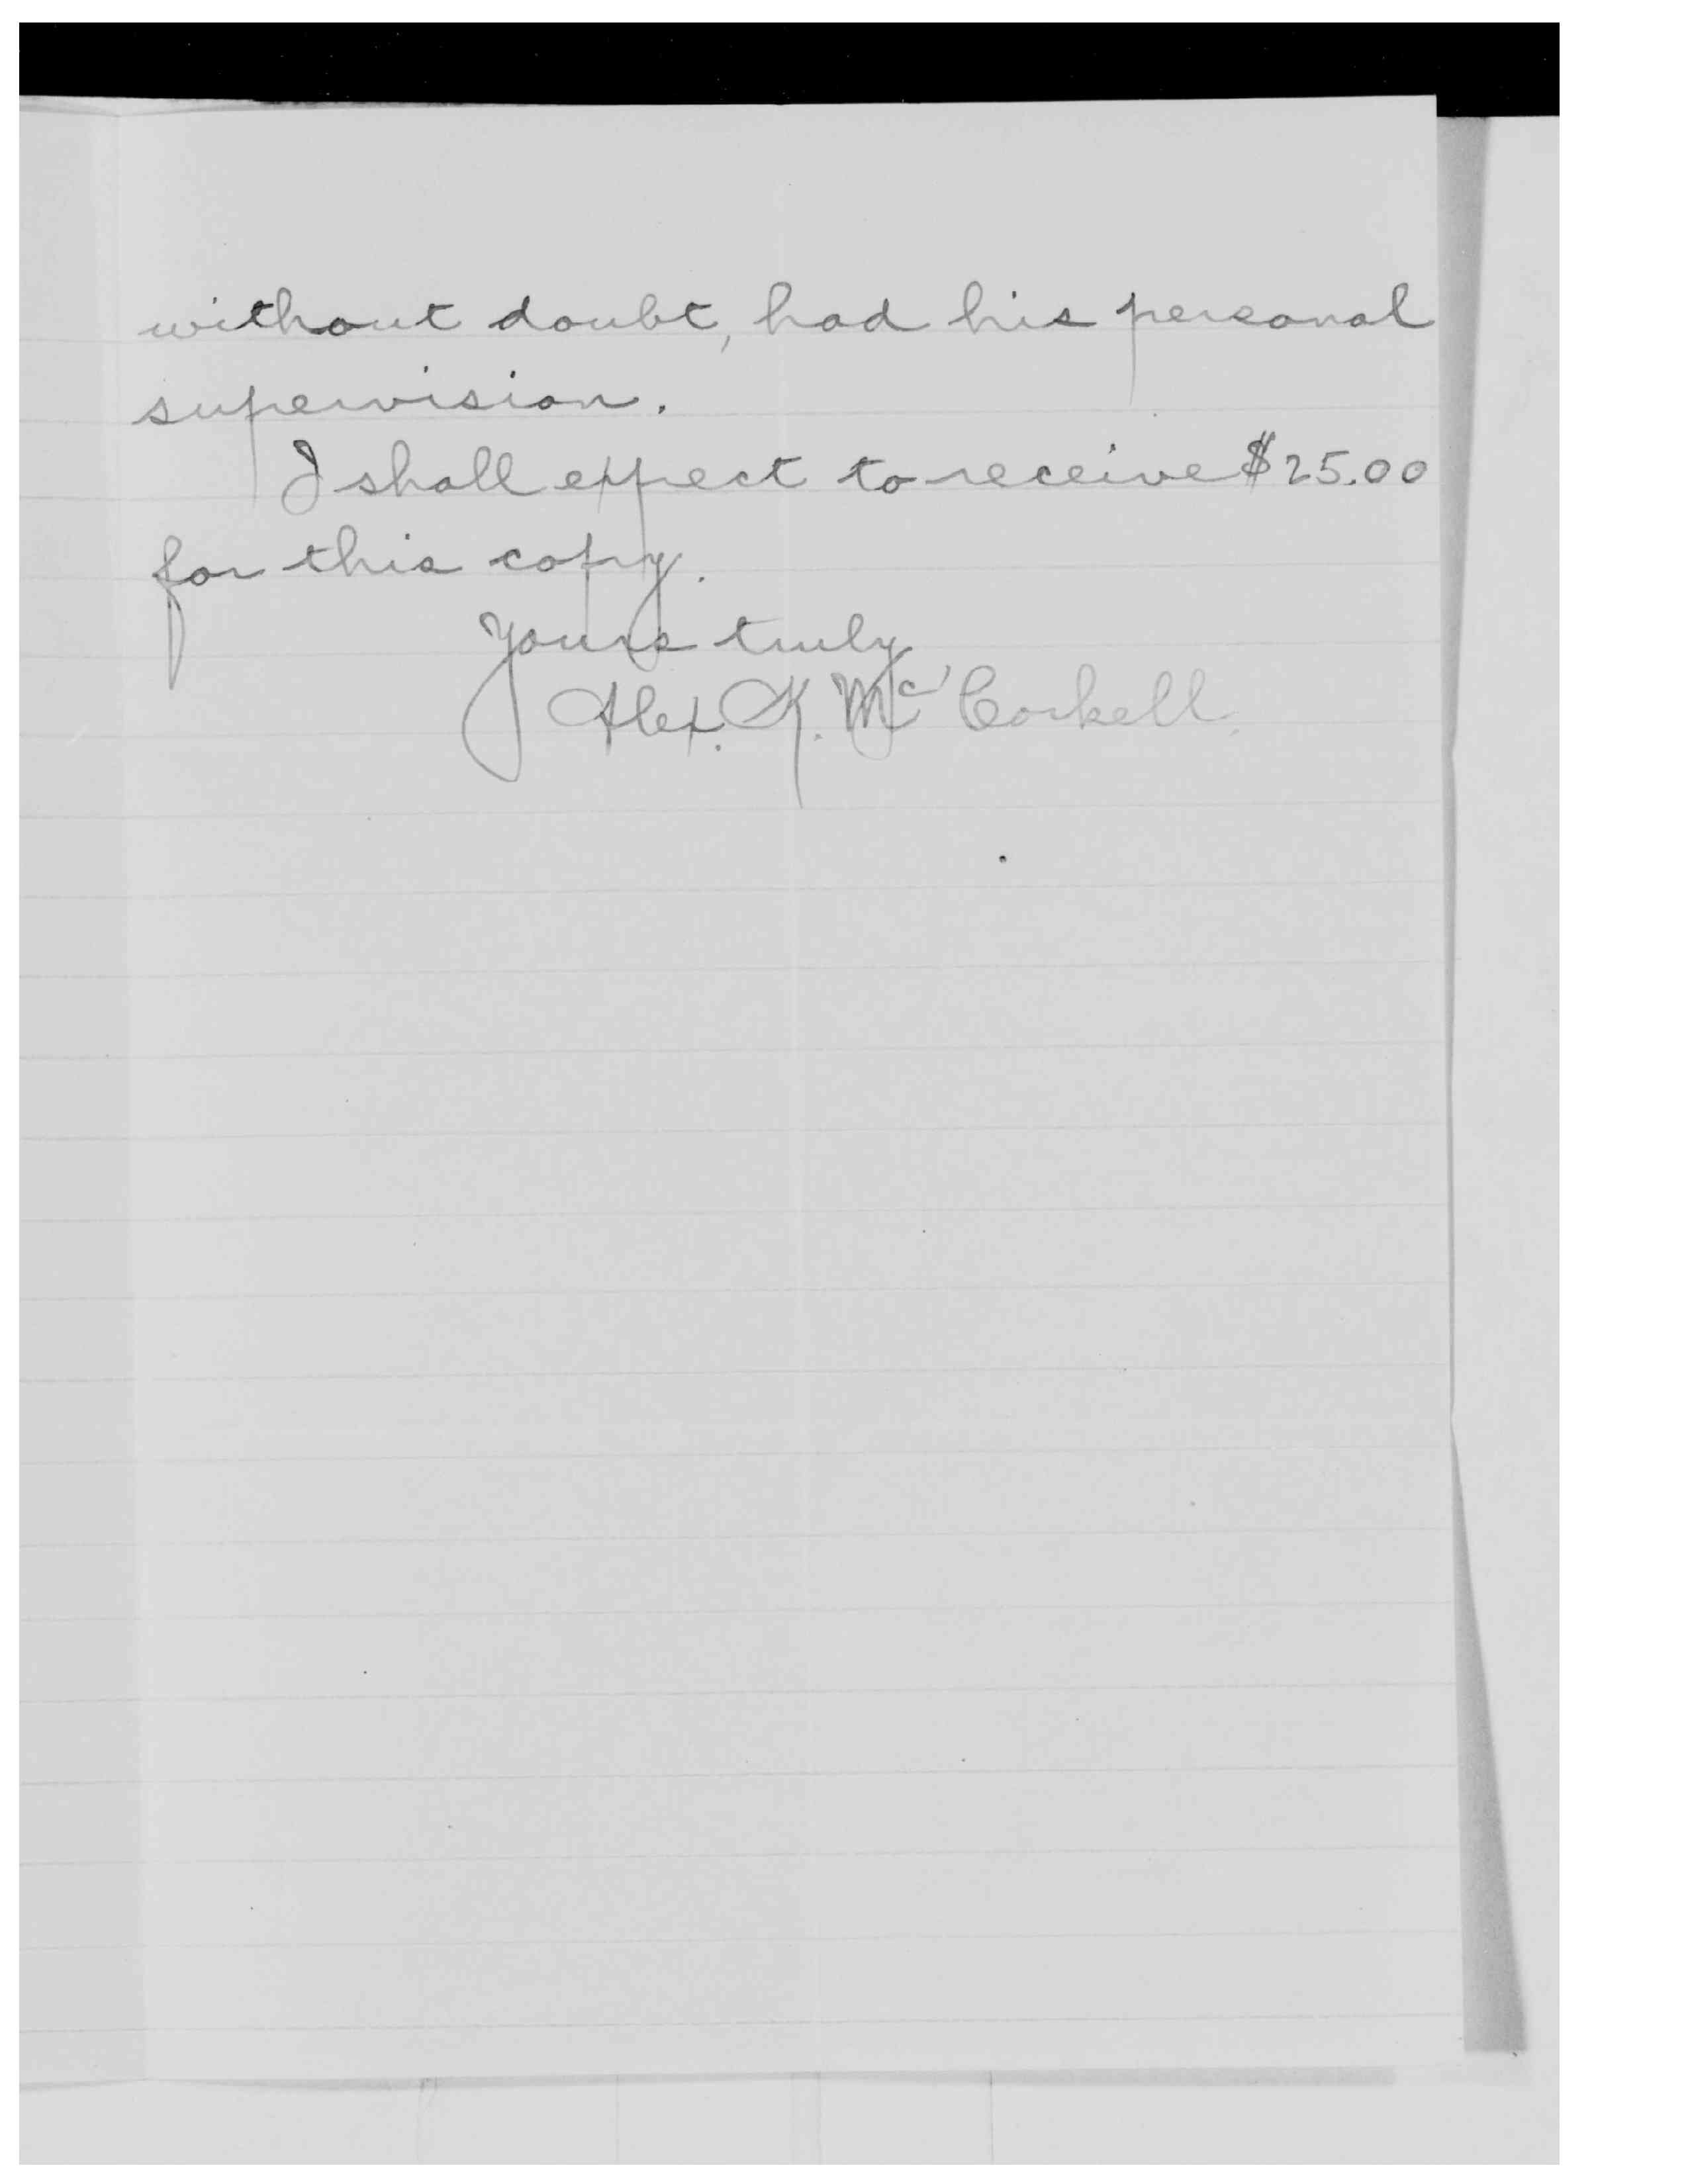 without doubt, had his personal
supervision.
I shall expect to receive $25.00
for this copy.
Yours truly
Alex. K. McCorkell.